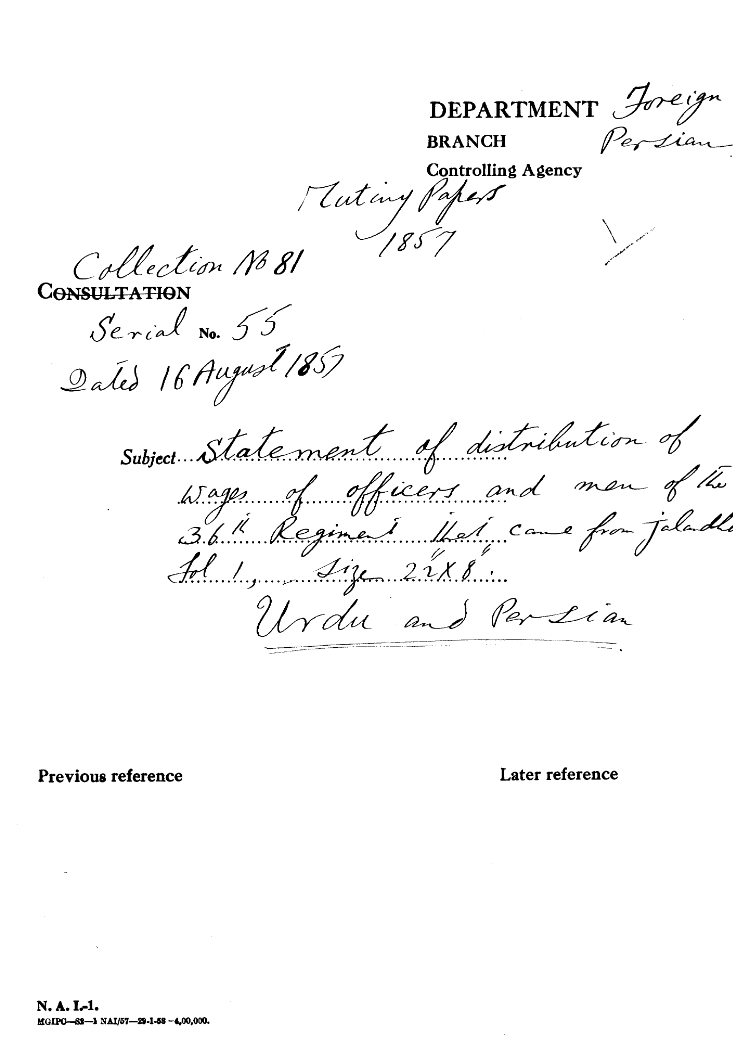 DEPARTMENT Foreign
BRANCH Persian
Controlling Agency
Mutiny Papers
1857
Collection No 81
CONSULTATION
Serial No. 55
Dated 16 August 1857
Subject Statement of distribution of
wages of officers and men of the
36th Regiment that came from Jalandh
fol 1, size 22"X8".
Urdu and Persian
Previous reference Later reference
N. A. I.-1.
MGIPC—S2—1 NAI/57—29-1-58—4,00,000.